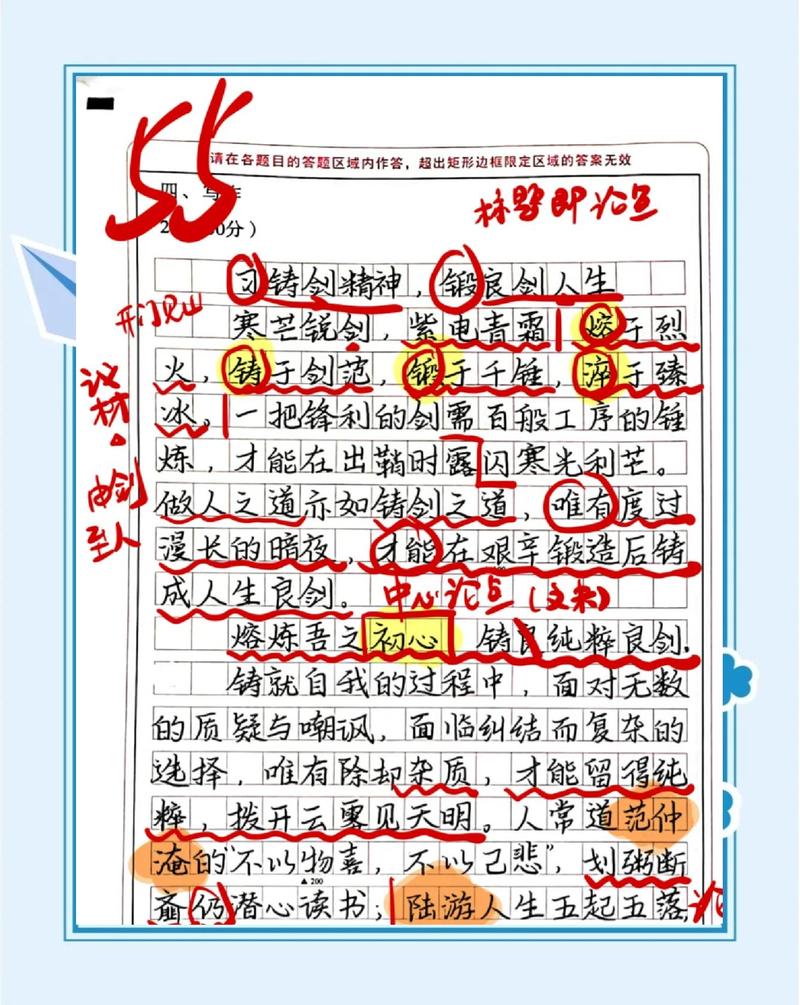 55
请在各题目的答题区域内作答，超出矩形边框限定区域的答案无效
四、写作
2 0分）
标题即论点
习铸剑精神，锻良剑人生
开门见山
寒芒锐剑，紫电青霜 熔于烈
火，铸于剑范，锻于千锤，淬于臻
议材。由剑到人
冰。一把锋利的剑需百般工序的锤
炼，才能在出鞘时露闪寒光利芒。
做人之道亦如铸剑之道，唯有度过
漫长的暗夜，才能在艰辛锻造后铸
成人生良剑。
中心论点（文末）
熔炼吾之初心 铸 纯粹良剑.
铸就自我的过程中，面对无数
的质疑与嘲讽，面临纠结而复杂的
选择，唯有除却杂质，才能留得纯
粹，拨开云雾见天明。人常道范仲
淹的“不以物喜，不以己悲”，划粥断
▲200
齑仍潜心读书；陆游人生五起五落
论